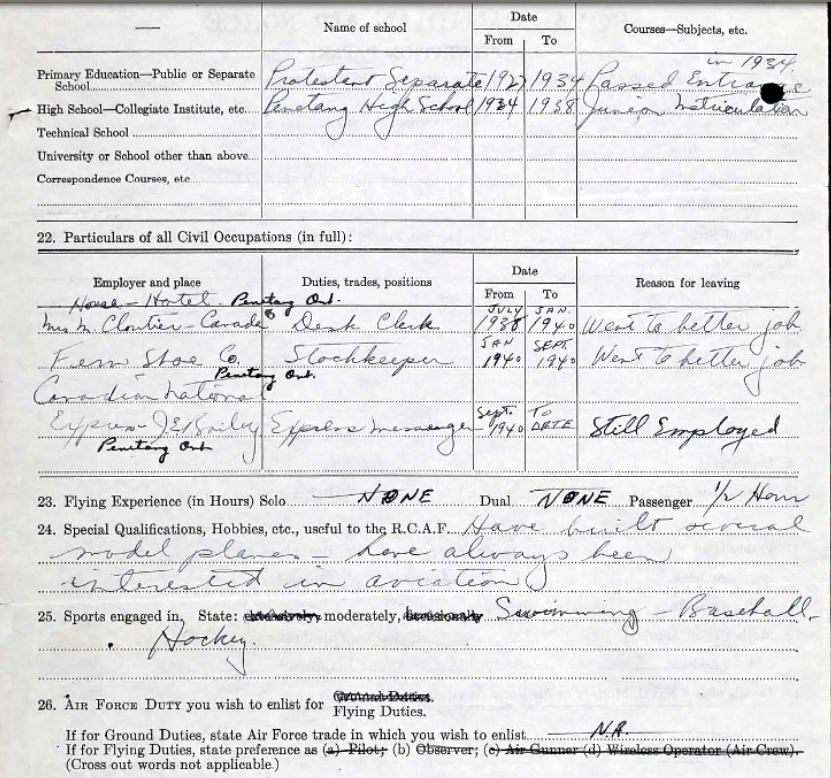 Name of school Date Courses—Subjects, etc.
From To
in 1934.
Primary Education—Public or Separate
School Protestant Separate 1927 1934 Passed Entrance
High School—Collegiate Institute, etc. Penetang High School 1934 1938 Junior Matriculation
Technical School
University or School other than above
Correspondence Courses, etc
22. Particulars of all Civil Occupations (in full):
Employer and place Duties, trades, positions Date Reason for leaving
From To
House - Hotel. Penetang Ont.
Mrs M. Cloutier - Canada Desk Clerk JULY 1938 JAN. 1940 Went to better job.
Fern Shoe Co. Stockkeeper JAN 1940 SEPT. 1940 Went to better job
Penetang Ont.
Canadian National
Express J E Bailey Express messenger Sept. 1940 TO DATE Still Employed
Penetang Ont
23. Flying Experience (in Hours) Solo NONE Dual NONE Passenger 1/2 Hour
24. Special Qualifications, Hobbies, etc., useful to the R.C.A.F. Have built several
model planes - have always been
interested in aviation
25. Sports engaged in, State: extensively, moderately, occasionally Swimming - Baseball.
Hockey.
26. AIR FORCE DUTY you wish to enlist for Ground Duties.
Flying Duties.
If for Ground Duties, state Air Force trade in which you wish to enlist N.A.
If for Flying Duties, state preference as (a) Pilot; (b) Observer; (c) Air Gunner (d) Wireless Operator (Air Crew).
(Cross out words not applicable.)